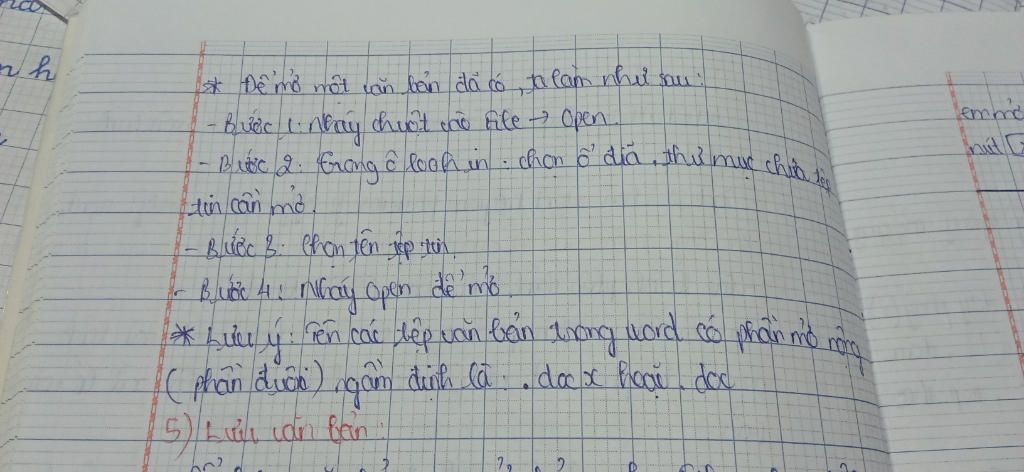 * Để mở một văn bản đã có, ta làm như sau:
- Bước 1: Nháy chuột vào File → Open.
- Bước 2: Trong ô look in: chọn ổ đĩa, thư mục chứa tệp
tin cần mở.
- Bước 3: Chọn tên tệp tin.
- Bước 4: Nháy Open để mở.
* Lưu ý: Tên các tệp văn bản trong word có phần mở rộng
(phần đuôi) ngầm định là: .docx hoặc .doc
5) Lưu văn bản: